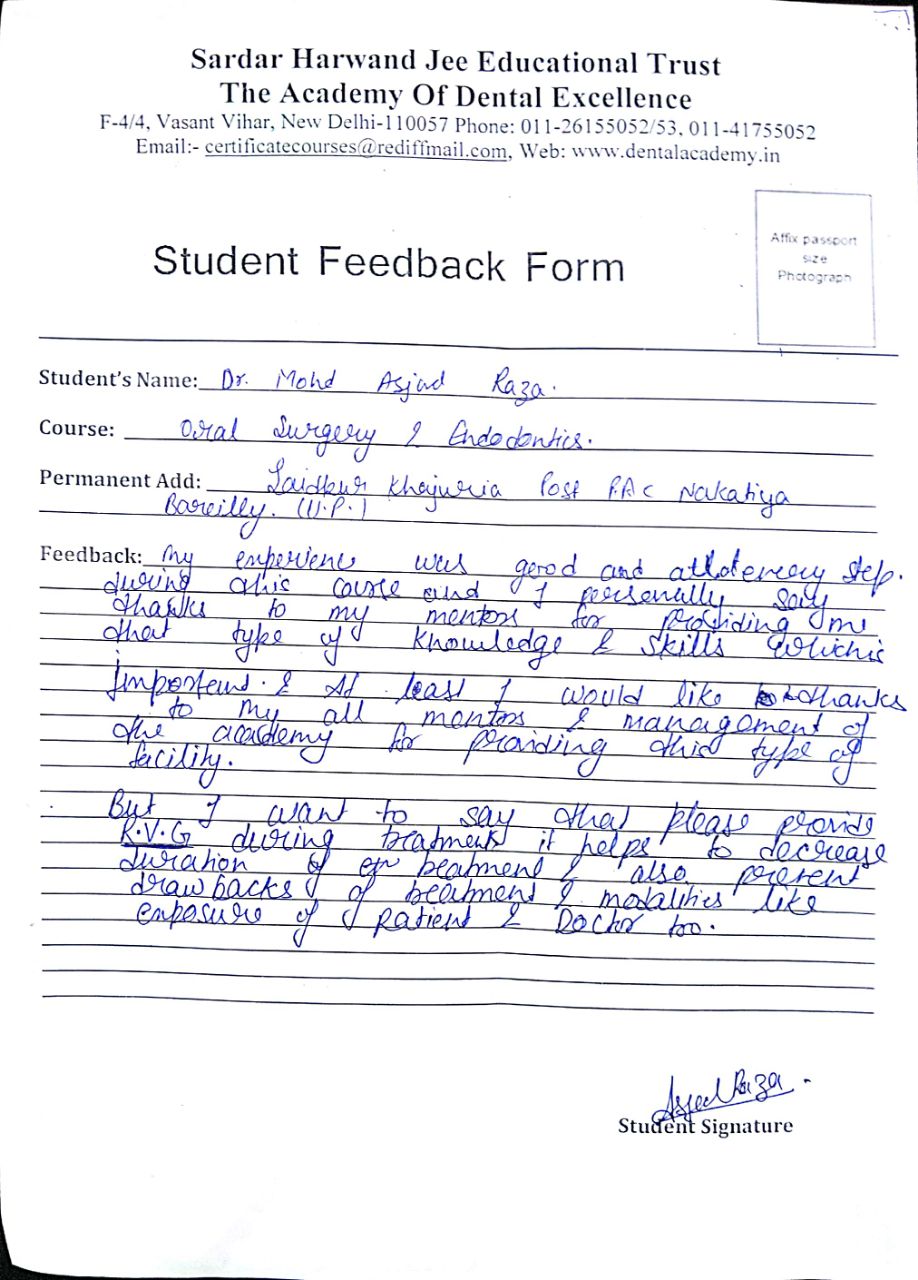 Sardar Harwand Jee Educational Trust
The Academy Of Dental Excellence
F-4/4, Vasant Vihar, New Delhi-110057 Phone: 011-26155052/53, 011-41755052
Email:- certificatecourses@rediffmail.com, Web: www.dentalacademy.in
Affix passport
size
Photograph
Student Feedback Form
Student's Name: Dr. Mohd Asjad Raza.
Course: Oral Surgery & Endodontics.
Permanent Add: Saidpur Khajuria Post P.A.C Nakatiya
Bareilly. (U.P.)
Feedback: My experience was gerod and every step.
during this course and I personally say
thanks to my mentors for providing me
that type of knowledge & skills which is
& At least I would like to thanks
to my all mentors & management of
the academy for providing this type of
facility.
But I want to say that please provide
R.V.G during treatment it helps to decrease
duration of treatment & also prevent
drawbacks of treatment & modalities like
exposure of patient & Doctor too.
Asjad Raza.
Student Signature